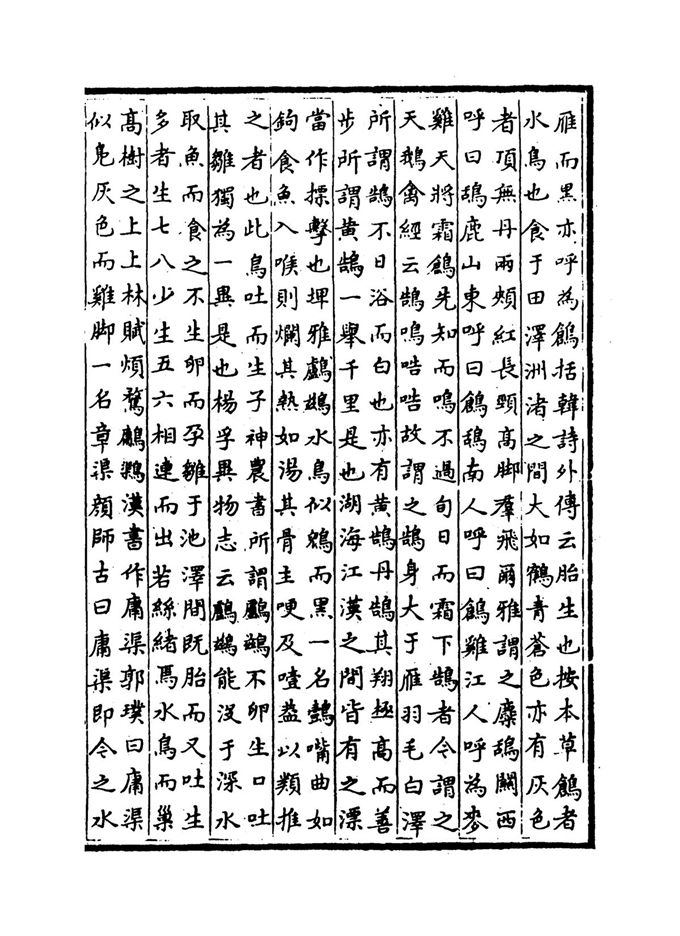 雁而黑亦呼為鶬括韓詩外傳云胎生也按本草鶬者
水鳥也食于田澤洲渚之間大如鶴青蒼色亦有灰色
者頂無丹兩頰紅長頸高脚羣飛爾雅謂之麋鴰關西
呼曰鴰鹿山東呼曰鶬鴰南人呼曰鶬雞江人呼為麥
雞天將霜鶬先知而鳴不過旬日而霜下鵠者今謂之
天鵝禽經云鵠鳴㗖㗖故謂之鵠身大于雁羽毛白澤
所謂鵠不日浴而白也亦有黄鵠丹鵠其翔極高而善
步所謂黄鵠一舉千里是也湖海江漢之間皆有之漂
當作摽擊也埤雅鸕鷀水鳥似鶂而黑一名鷧嘴曲如
鉤食魚入喉則爛其熱如湯其骨主哽及噎葢以類推
之者也此鳥吐而生子神農書所謂鸕鷀不卵生口吐
其雛獨為一異是也楊孚異物志云鸕鷀能没于深水
取魚而食之不生卵而孕雛于池澤間既胎而又吐生
多者生七八少生五六相連而出若絲緒焉水鳥而巢
髙樹之上上林賦煩鶩鷛𪆂漢書作庸渠郭璞曰庸渠
似鳬灰色而雞脚一名章渠顔師古曰庸渠即今之水